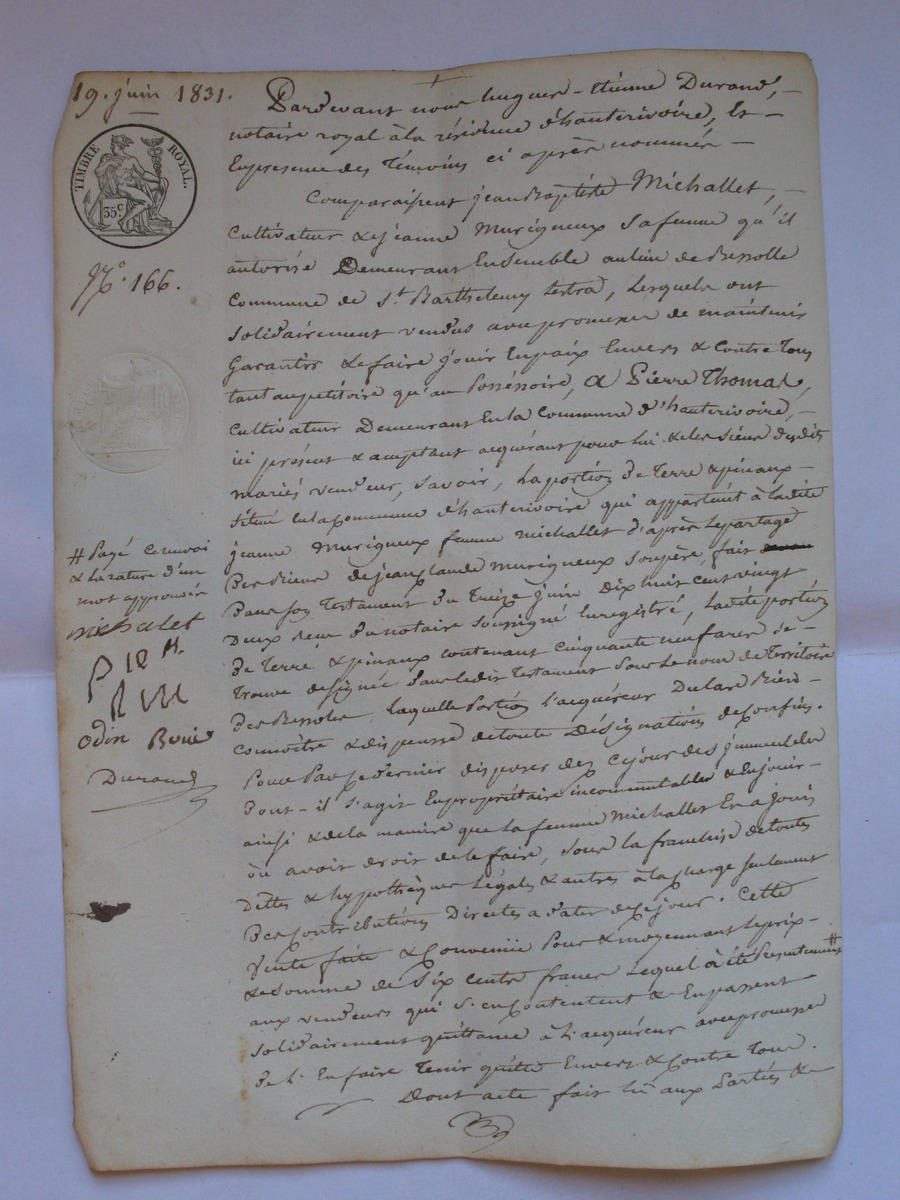 19. juin 1831.
TIMBRE ROYAL.
35c
N.° 166.
Pardevant nous hugues-etienne Durand,
notaire royal à la résidence d'hauterivoire, Et
En presence des Témoins ci après nommés
Comparaissent jean Baptiste Michallet,
Cultivateur & jeanne Murigneux sa femme qu'il
autorise Demeurant Ensemble au lieu de
Commune de St. Barthelemy Lestra, Lesquels ont
Solidairement vendus avec promesse de maintenir
Garantir & faire jouir En paix Envers & Contre Tous
tant au petitoire qu'au Possessoire, A Pierre Thomas,
Cultivateur Demeurant En la Commune d'hauterivoire,
ici présent & acceptant acquérant pour lui & les siens desdits
mariés vendeurs, Savoir, La portion de Terre & pinaux
Situé en la Commune d'hauterivoire qui appartient à ladite
jeanne Murigneux femme michallet d'après le partage
des biens de jean Claude Murigneux son père, fait
Dans son Testament du Treize juin Dix huit cent vingt
Deux reçu du notaire soussigné Enregistré, Ladite portion
de Terre & pinaux contenant cinquante neuf ares se
Trouve designée dans ledit Testament sous le nom de Territoire
des laquelle Portion l'acquéreur Declare Bien
Connoître & dispense de toute Désignation de confins.
Pour Par ce dernier disposer dez ce jour des immeubles
dont-il s'agit En propriétaire incommutable & En jouir
ainsi & de la maniere que la femme Michallet En a joui
où avoir droit de le faire, sous la franchise de toutes
dettes & hypothèques Légales & autres à la charge seulement
des Contributions Directes a dater de ce jour. Cette
Vente faite & Convenue Pour & moyennant le prix
& somme de Six cents francs Lequel à été Presentement #
aux vendeurs qui s'en Contentent & En passent
solidairement quittance à l'acquéreur avec promesse
de l'En faire Tenir quitte Envers & Contre Tous.
Dont acte fait lû aux Parties &
# Payé Ce renvoi
& la rature d'un
mot approuvés
michalet
Odin
Durand